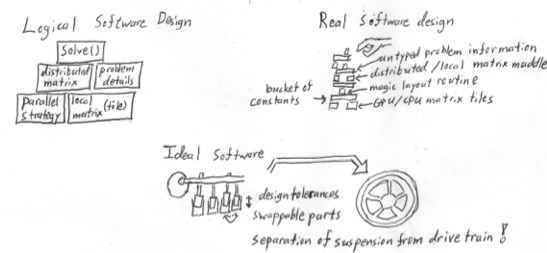 Logical Software Design
Solve()
distributed matrix
problem details
parallel strategy
local matrix (tile)
Real Software design
untyped problem information
distributed/local matrix muddle
magic layout routine
GPU/CPU matrix tiles
bucket of constants
Ideal Software
design tolerances
swappable parts
separation of suspension from drive train!